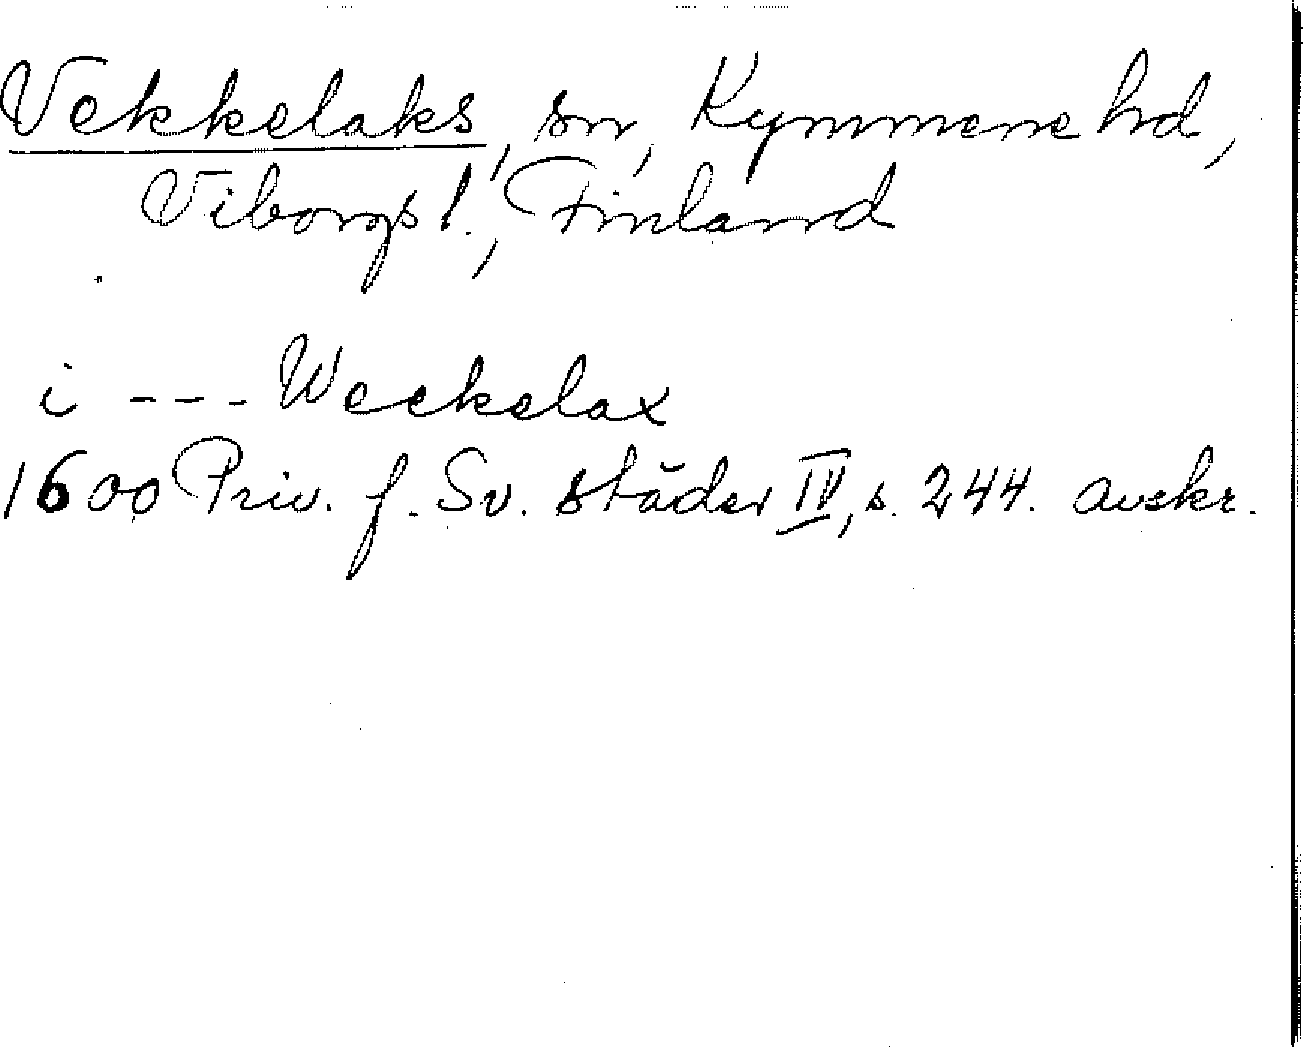 Vekkelaks, sn, Kymmene hd,
Viborgs l., Finland
i --- Weckelax
1600 Priv. f. Sv. städer IV, s. 244. avskr.